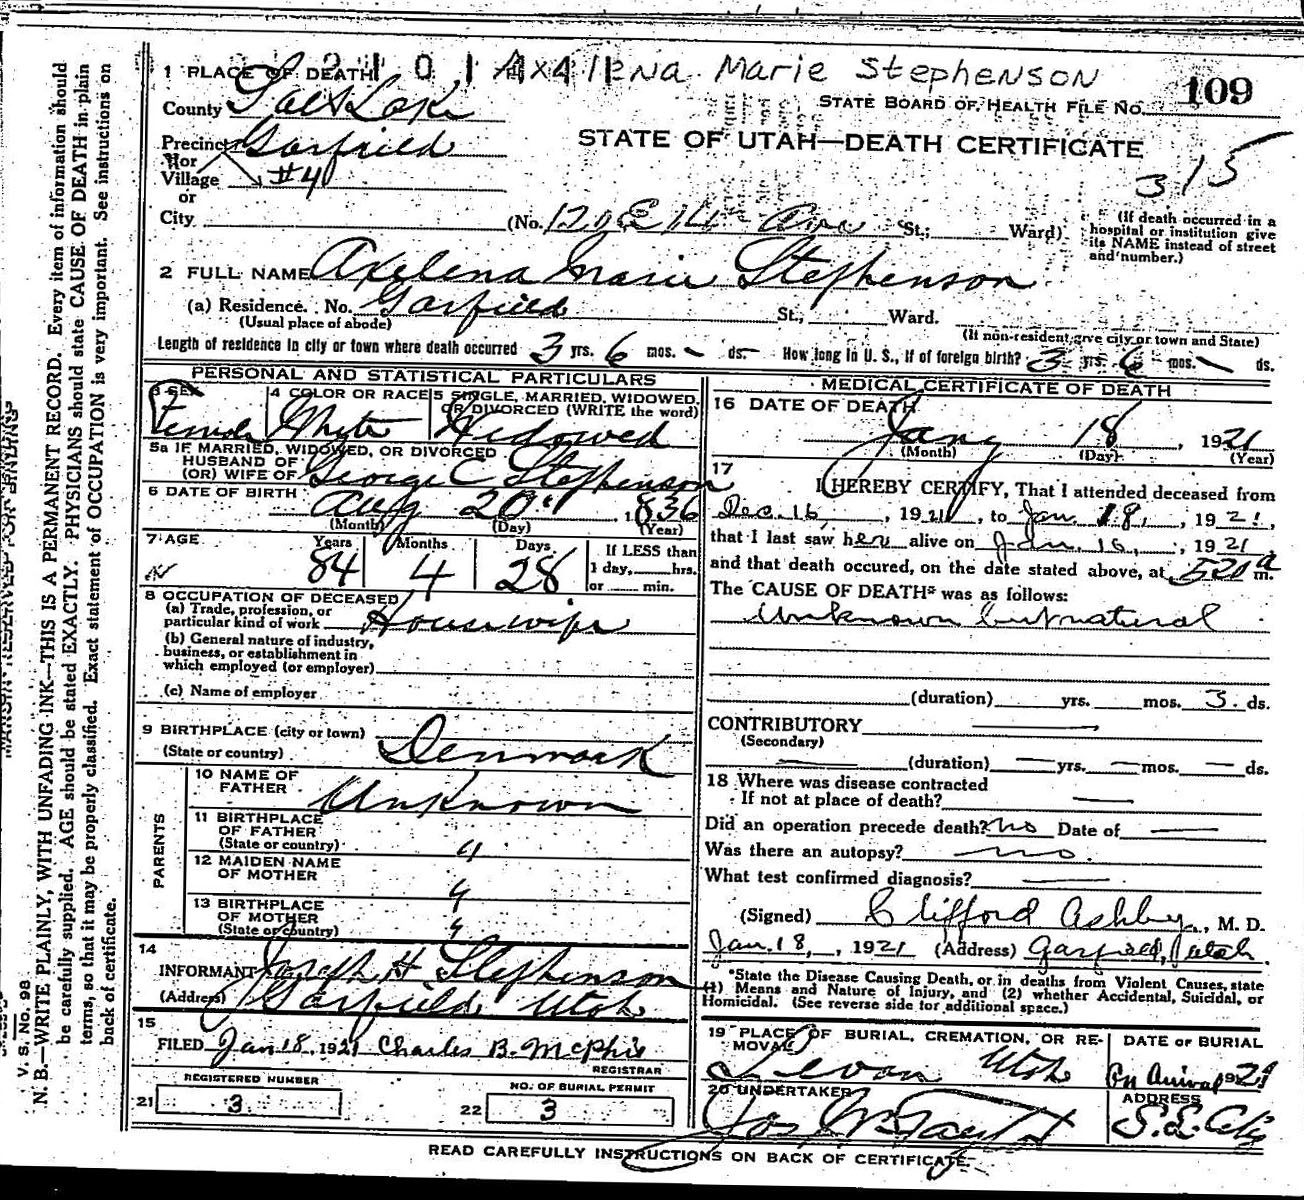 Axlena Marie Stephenson
1 PLACE OF DEATH
County Salt Lake
STATE BOARD OF HEALTH FILE NO. 109
Precinct Garfield
or
Village #4
or
City
STATE OF UTAH—DEATH CERTIFICATE
315
(No. 120 E 14 Ave St.; Ward)
(If death occurred in a hospital or institution give its NAME instead of street and number.)
2 FULL NAME Axelena Marie Stephenson
(a) Residence. No. Garfield St., Ward.
(Usual place of abode)
(If non-resident give city or town and State)
Length of residence in city or town where death occurred 3 yrs. 6 mos. - ds. How long in U. S., if of foreign birth? 3 yrs. 6 mos. - ds.
PERSONAL AND STATISTICAL PARTICULARS
3 SEX Female
4 COLOR OR RACE White
5 SINGLE, MARRIED, WIDOWED, OR DIVORCED (WRITE the word) Widowed
5a IF MARRIED, WIDOWED, OR DIVORCED
HUSBAND OF
(OR) WIFE OF George C Stephenson
6 DATE OF BIRTH Aug 20 1836
(Month) (Day) (Year)
7 AGE Years Months Days If LESS than
84 4 28 1 day, hrs.
or min.
8 OCCUPATION OF DECEASED
(a) Trade, profession, or
particular kind of work Housewife
(b) General nature of industry,
business, or establishment in
which employed (or employer)
(c) Name of employer
9 BIRTHPLACE (city or town)
(State or country) Denmark
PARENTS
10 NAME OF
FATHER Unknown
11 BIRTHPLACE
OF FATHER
(State or country) "
12 MAIDEN NAME
OF MOTHER "
13 BIRTHPLACE
OF MOTHER
(State or country) "
14
INFORMANT Joseph H Stephenson
(Address) Garfield Utah
15
FILED Jan 18, 1921 Charles B. McPhie
REGISTRAR
REGISTERED NUMBER
21 3
NO. OF BURIAL PERMIT
22 3
MEDICAL CERTIFICATE OF DEATH
16 DATE OF DEATH
Jany 18, 1921
(Month) (Day) (Year)
17
I HEREBY CERTIFY, That I attended deceased from
Dec. 16, 1921, to Jan. 18, 1921,
that I last saw her alive on Jan. 16, 1921
and that death occured, on the date stated above, at 520 a m.
The CAUSE OF DEATH* was as follows:
Unknown but natural
(duration) yrs. mos. 3 ds.
CONTRIBUTORY —
(Secondary)
— (duration) — yrs. — mos. — ds.
18 Where was disease contracted
If not at place of death? —
Did an operation precede death? No Date of —
Was there an autopsy? no.
What test confirmed diagnosis? —
(Signed) Clifford Ashby, M. D.
Jan. 18, 1921 (Address) Garfield, Utah.
*State the Disease Causing Death, or in deaths from Violent Causes, state
(1) Means and Nature of Injury, and (2) whether Accidental, Suicidal, or
Homicidal. (See reverse side for additional space.)
19 PLACE OF BURIAL, CREMATION, OR RE-
MOVAL
Levan Utah
DATE OF BURIAL
On Arrival 1921
20 UNDERTAKER
ADDRESS
READ CAREFULLY INSTRUCTIONS ON BACK OF CERTIFICATE.
MARGIN RESERVED FOR BINDING
V. S. No. 98
N. B.—WRITE PLAINLY, WITH UNFADING INK—THIS IS A PERMANENT RECORD. Every item of information should
be carefully supplied. AGE should be stated EXACTLY. PHYSICIANS should state CAUSE OF DEATH in plain
terms, so that it may be properly classified. Exact statement of OCCUPATION is very important. See instructions on
back of certificate.